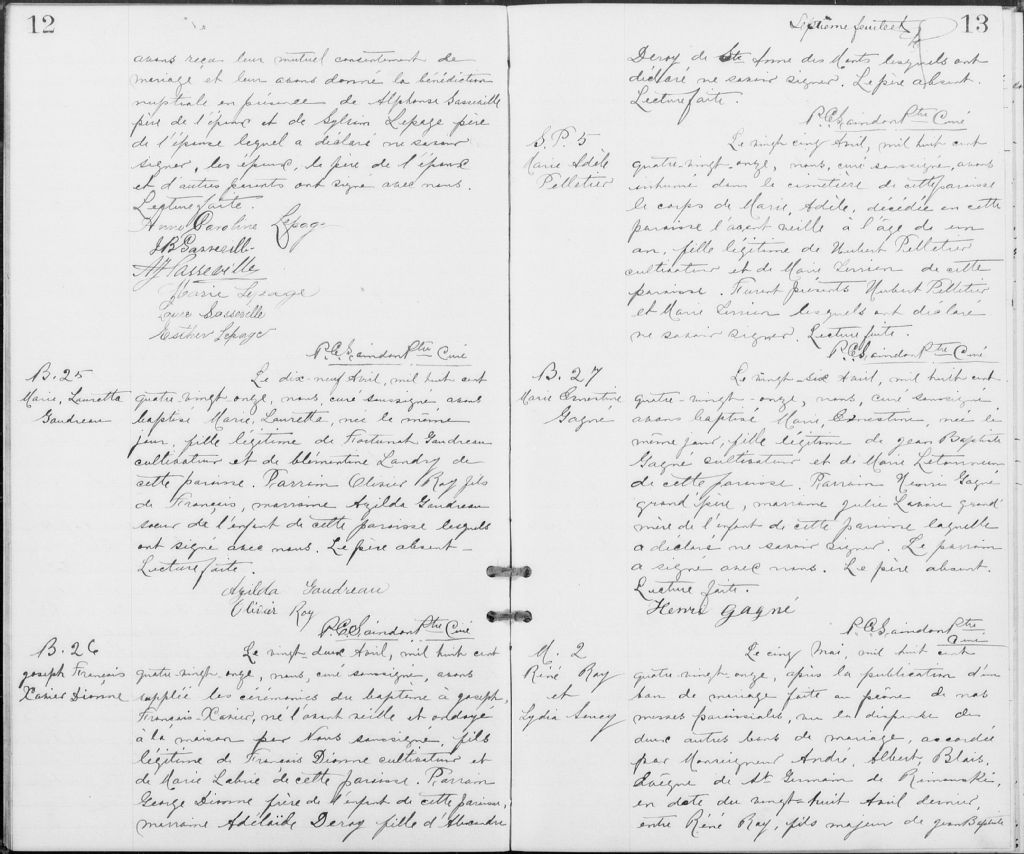 12
avons reçu leur mutuel consentement de
mariage et leur avons donné la bénédiction
nuptiale en présence de Alphonse Gasseville
père de l'époux et de Sylvain Lepage père
de l'épouse lequel a déclaré ne savoir
signer, les époux, le père de l'époux
et d'autres parents ont signé avec nous.
Lecture faite.
Anne Caroline Lepage
JB Gasseville
Marie Lepage
Gasseville
Esther Lepage
P. C. Saindon Ptre Curé
B. 25
Marie, Lauretta
Gaudreau
Le dix-neuf Avril, mil huit cent
quatre-vingt onze, nous, curé soussigné avons
baptisé Marie, Lauretta, née le même
jour, fille légitime de Fortunat Gaudreau
cultivateur et de Clémentine Landry de
cette paroisse. Parrain Olivier Roy fils
de François, marraine Azilda Gaudreau
soeur de l'enfant de cette paroisse lesquels
ont signé avec nous. Le père absent
Lecture faite.
Azilda Gaudreau
Olivier Roy
P. C. Saindon Ptre Curé
B. 26
joseph François
Xavier Dionne
Le vingt-deux Avril, mil huit cent
quatre-vingt onze, nous, curé soussigné, avons
supplée les cérémonies du baptême à joseph,
François-Xavier, né l'avant veille et ondoyé
à la maison par Nous soussigné, fils
légitime de François Dionne cultivateur et
de Marie Labrie de cette paroisse. Parrain
George Dionne frère de l'enfant de cette paroisse,
marraine Adélaïde Deroy fille d'Alexandre
Septième feuillet
13
Deroy de Ste Anne des Monts lesquels ont
déclaré ne savoir signer. Le père absent.
Lecture faite.
P. C. Saindon Ptre Curé
S. P. 5
Marie Adèle
Pelletier
Le vingt cinq Avril, mil huit cent
quatre-vingt onze, nous, curé soussigné, avons
inhumé dans le cimetière de cette paroisse
le corps de Marie, Adèle, décédée en cette
paroisse l'avant veille à l'âge de un
an, fille légitime de Hubert Pelletier
cultivateur et de Marie Sirrien de cette
paroisse. Furent présents Hubert Pelletier
et Marie Sirrien lesquels ont déclaré
ne savoir signer. Lecture faite.
P. C. Saindon Ptre Curé
B. 27
Marie Ernestine
Gagné
Le vingt-six Avril, mil huit cent
quatre-vingt-onze, nous, curé soussigné
avons baptisé Marie, Ernestine, née le
même jour, fille légitime de jean Baptiste
Gagné cultivateur et de Marie Letourneau
de cette paroisse. Parrain Henri Gagné
grand'père, marraine julie Lavoie grand'
mère de l'enfant de cette paroisse laquelle
a déclaré ne savoir signer. Le parrain
a signé avec nous. Le père absent.
Lecture faite.
Henri gagné
P. C. Saindon Ptre
Curé
M. 2
Réné Roy
et
Lydia
Le cinq Mai, mil huit cent
quatre-vingt onze, après la publication d'un
ban de mariage faite au prône de nos
messes paroissiales, vu la dispense de
deux autres bans de mariage, accordée
par Monseigneur André, Albert, Blais,
évêque de St Germain de Rimouski,
en date du vingt-huit Avril dernier,
entre Réné Roy, fils majeur de jean Baptiste